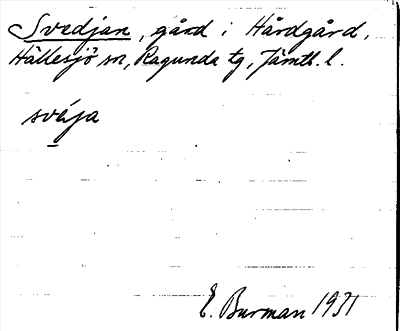 Svedjan, gård i Hårdgård,
Hällesjö sn, Ragunda tg, Jämtl. l.
svéja
E. Burman 1931